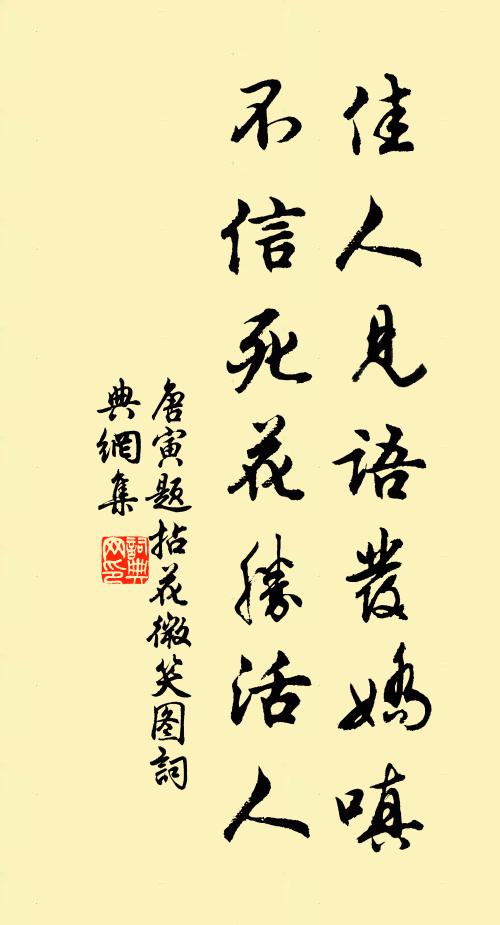 佳人見語發嬌嗔
不信死花勝活人
唐寅題拈花微笑图詞
典網集
詞典
网印